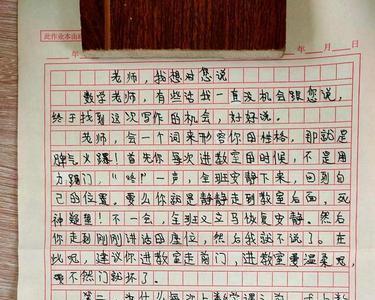 此作业本由
年 年 月 日
老师，我想对您说
数学老师，有些话我一直没机会跟您说，
终于找到这次写作的机会，好好说。
老师，会一个词来形容你的性格，那就是
脾气火爆！首先你每次进教室的时候，不是用
力踢门，“咚”一声，全班安静下来，回到自
己的位置。要么你就是静静走到教室后面，死
神凝望！不一会，全班又立马恢复安静。然后
你走到刚刚讲话的座位，然后我就不说了。在
此呢，建议你进教室走前门，进教室要温柔呃，
要不然门就坏了。
第二，为什么每次上数学课